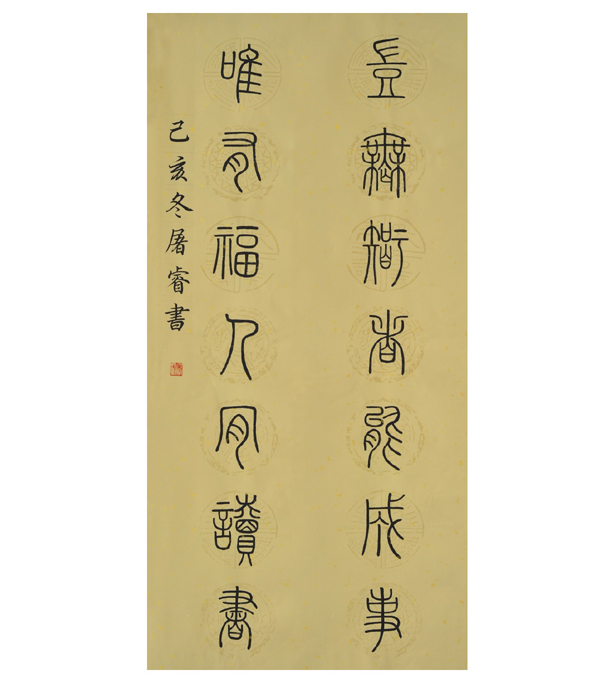 豈無智者能成事
唯有福人肎讀書
己亥冬屠睿書